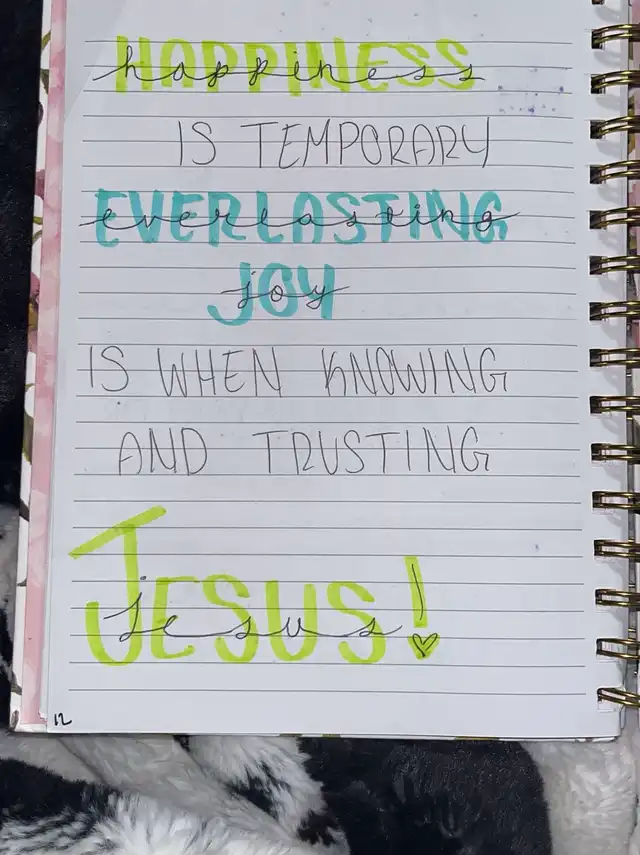 HAPPINESS
happiness
IS TEMPORARY
EVERLASTING
everlasting
JOY
joy
IS WHEN KNOWING
AND TRUSTING
JESUS!
jesus
12